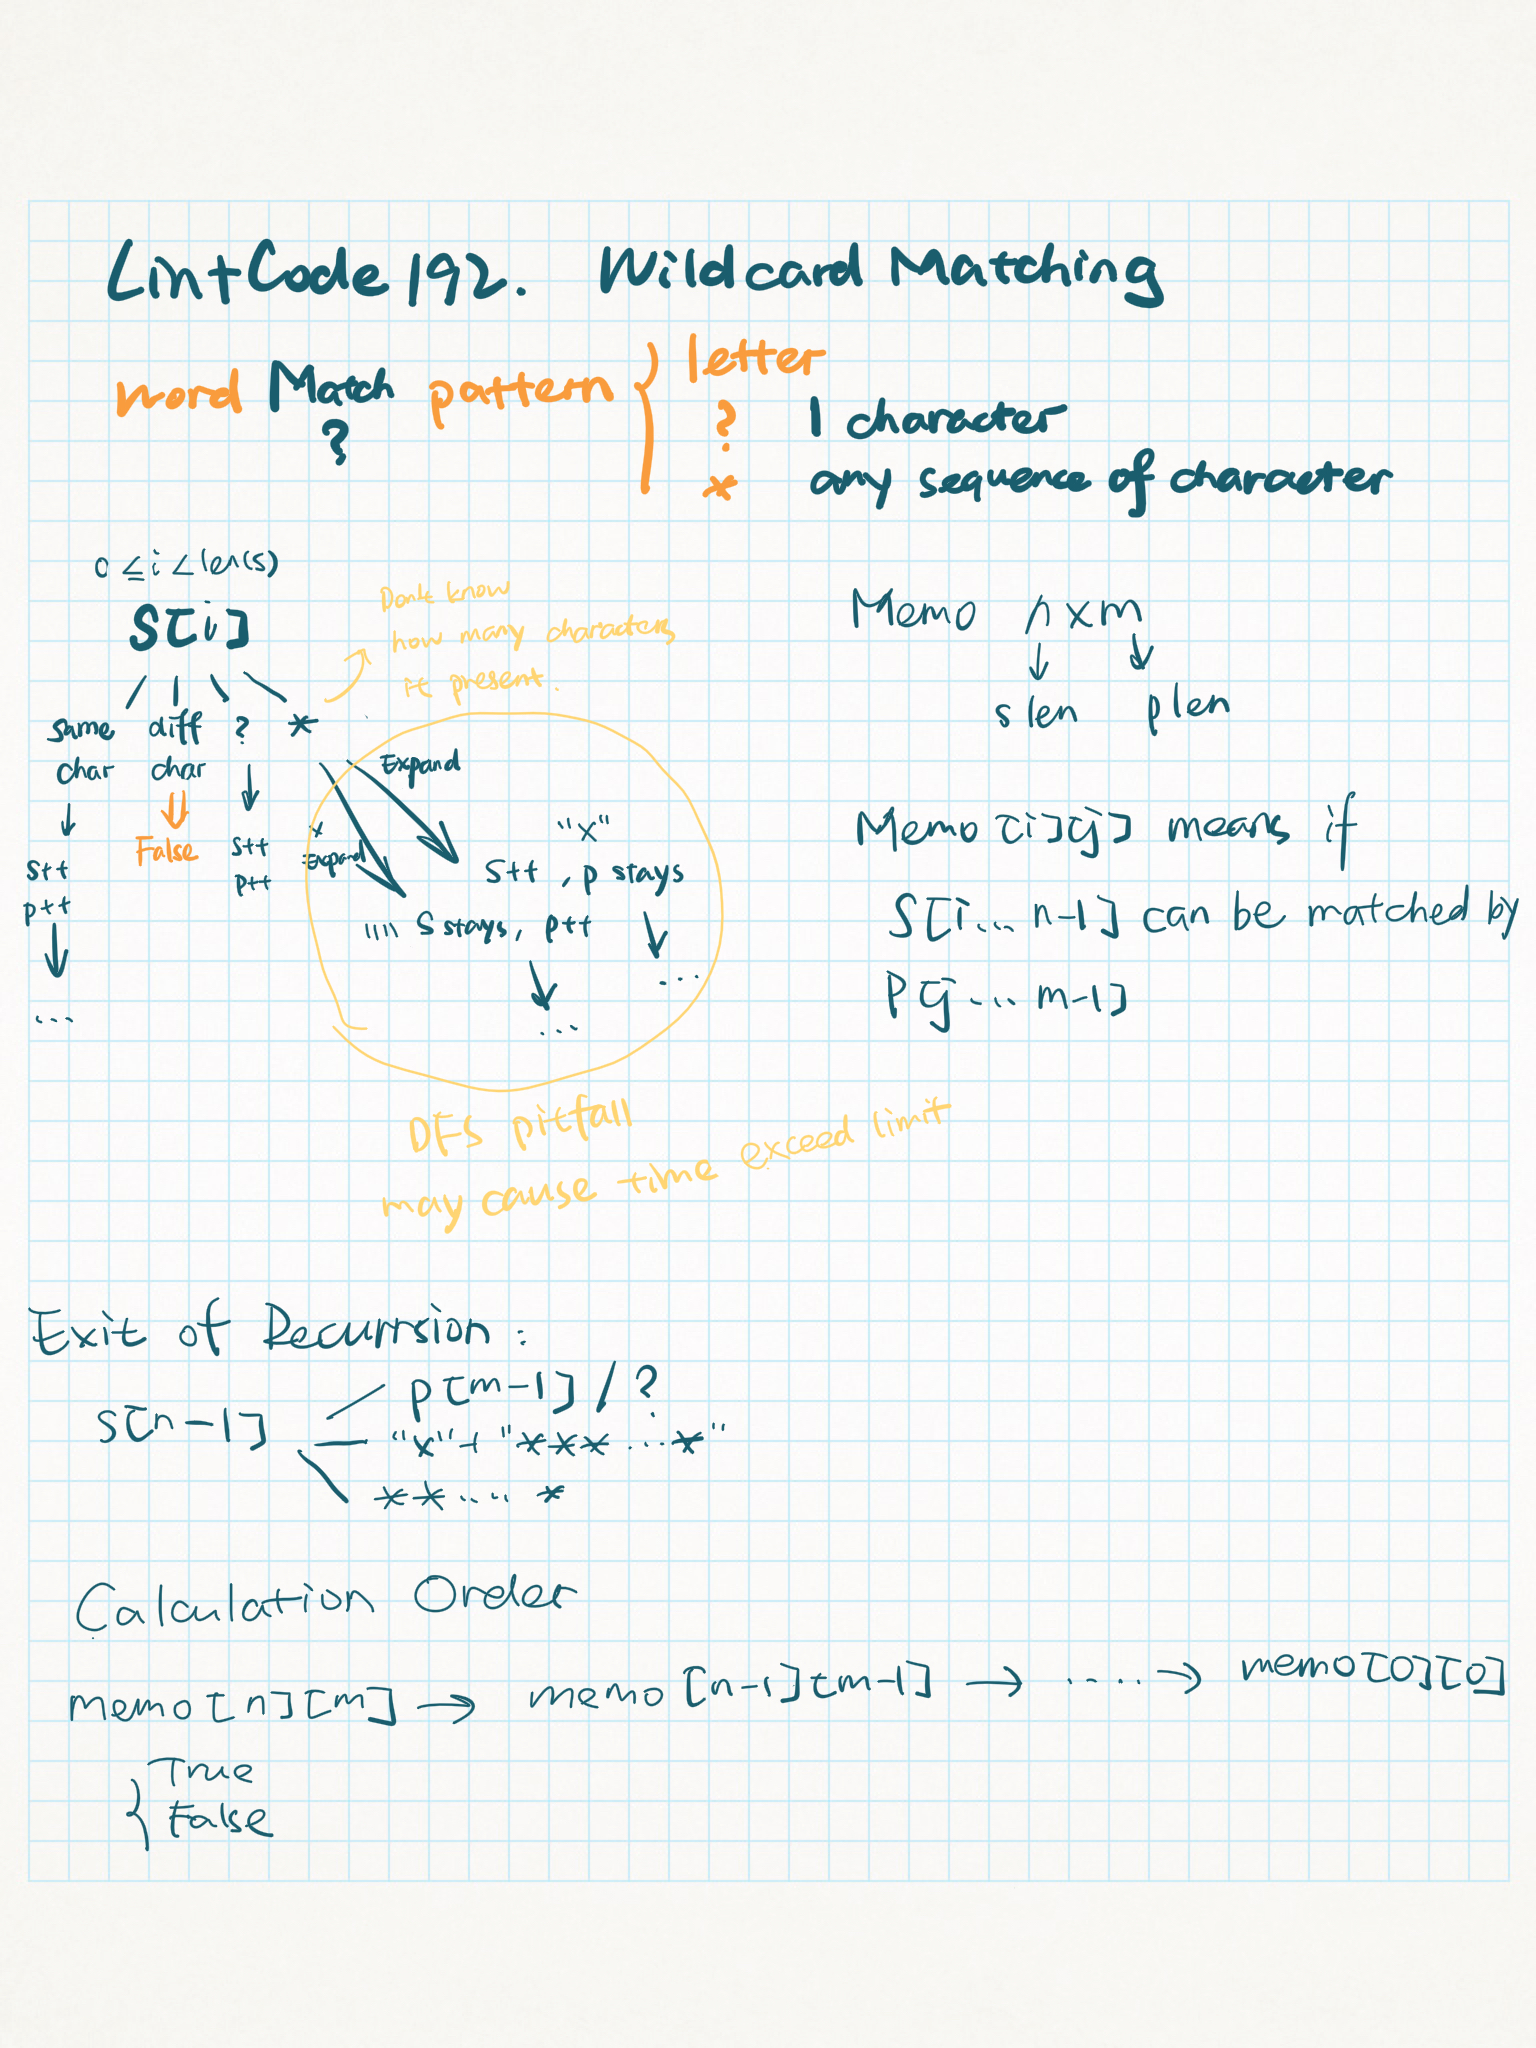 LintCode 192. Wildcard Matching
word Match pattern { letter
? ? 1 character
* any sequence of character
0 ≤ i < len(s)
S[i]
Don't know
how many characters
it present.
same diff ? *
char char
False
S++
p++
...
S++
p++
Expand
x
Expand
"x"
S++, p stays
"" S stays, p++
...
...
DFS pitfall
may cause time exceed limit
Memo n x m
slen plen
Memo [i][j] means if
S[i... n-1] can be matched by
P[j... m-1]
Exit of Recurrsion:
S[n-1] p[m-1] / ?
"x" + "*** ... *"
** .... *
Calculation Order
memo[n][m] → memo[n-1][m-1] → ..... → memo[0][0]
{ True
False